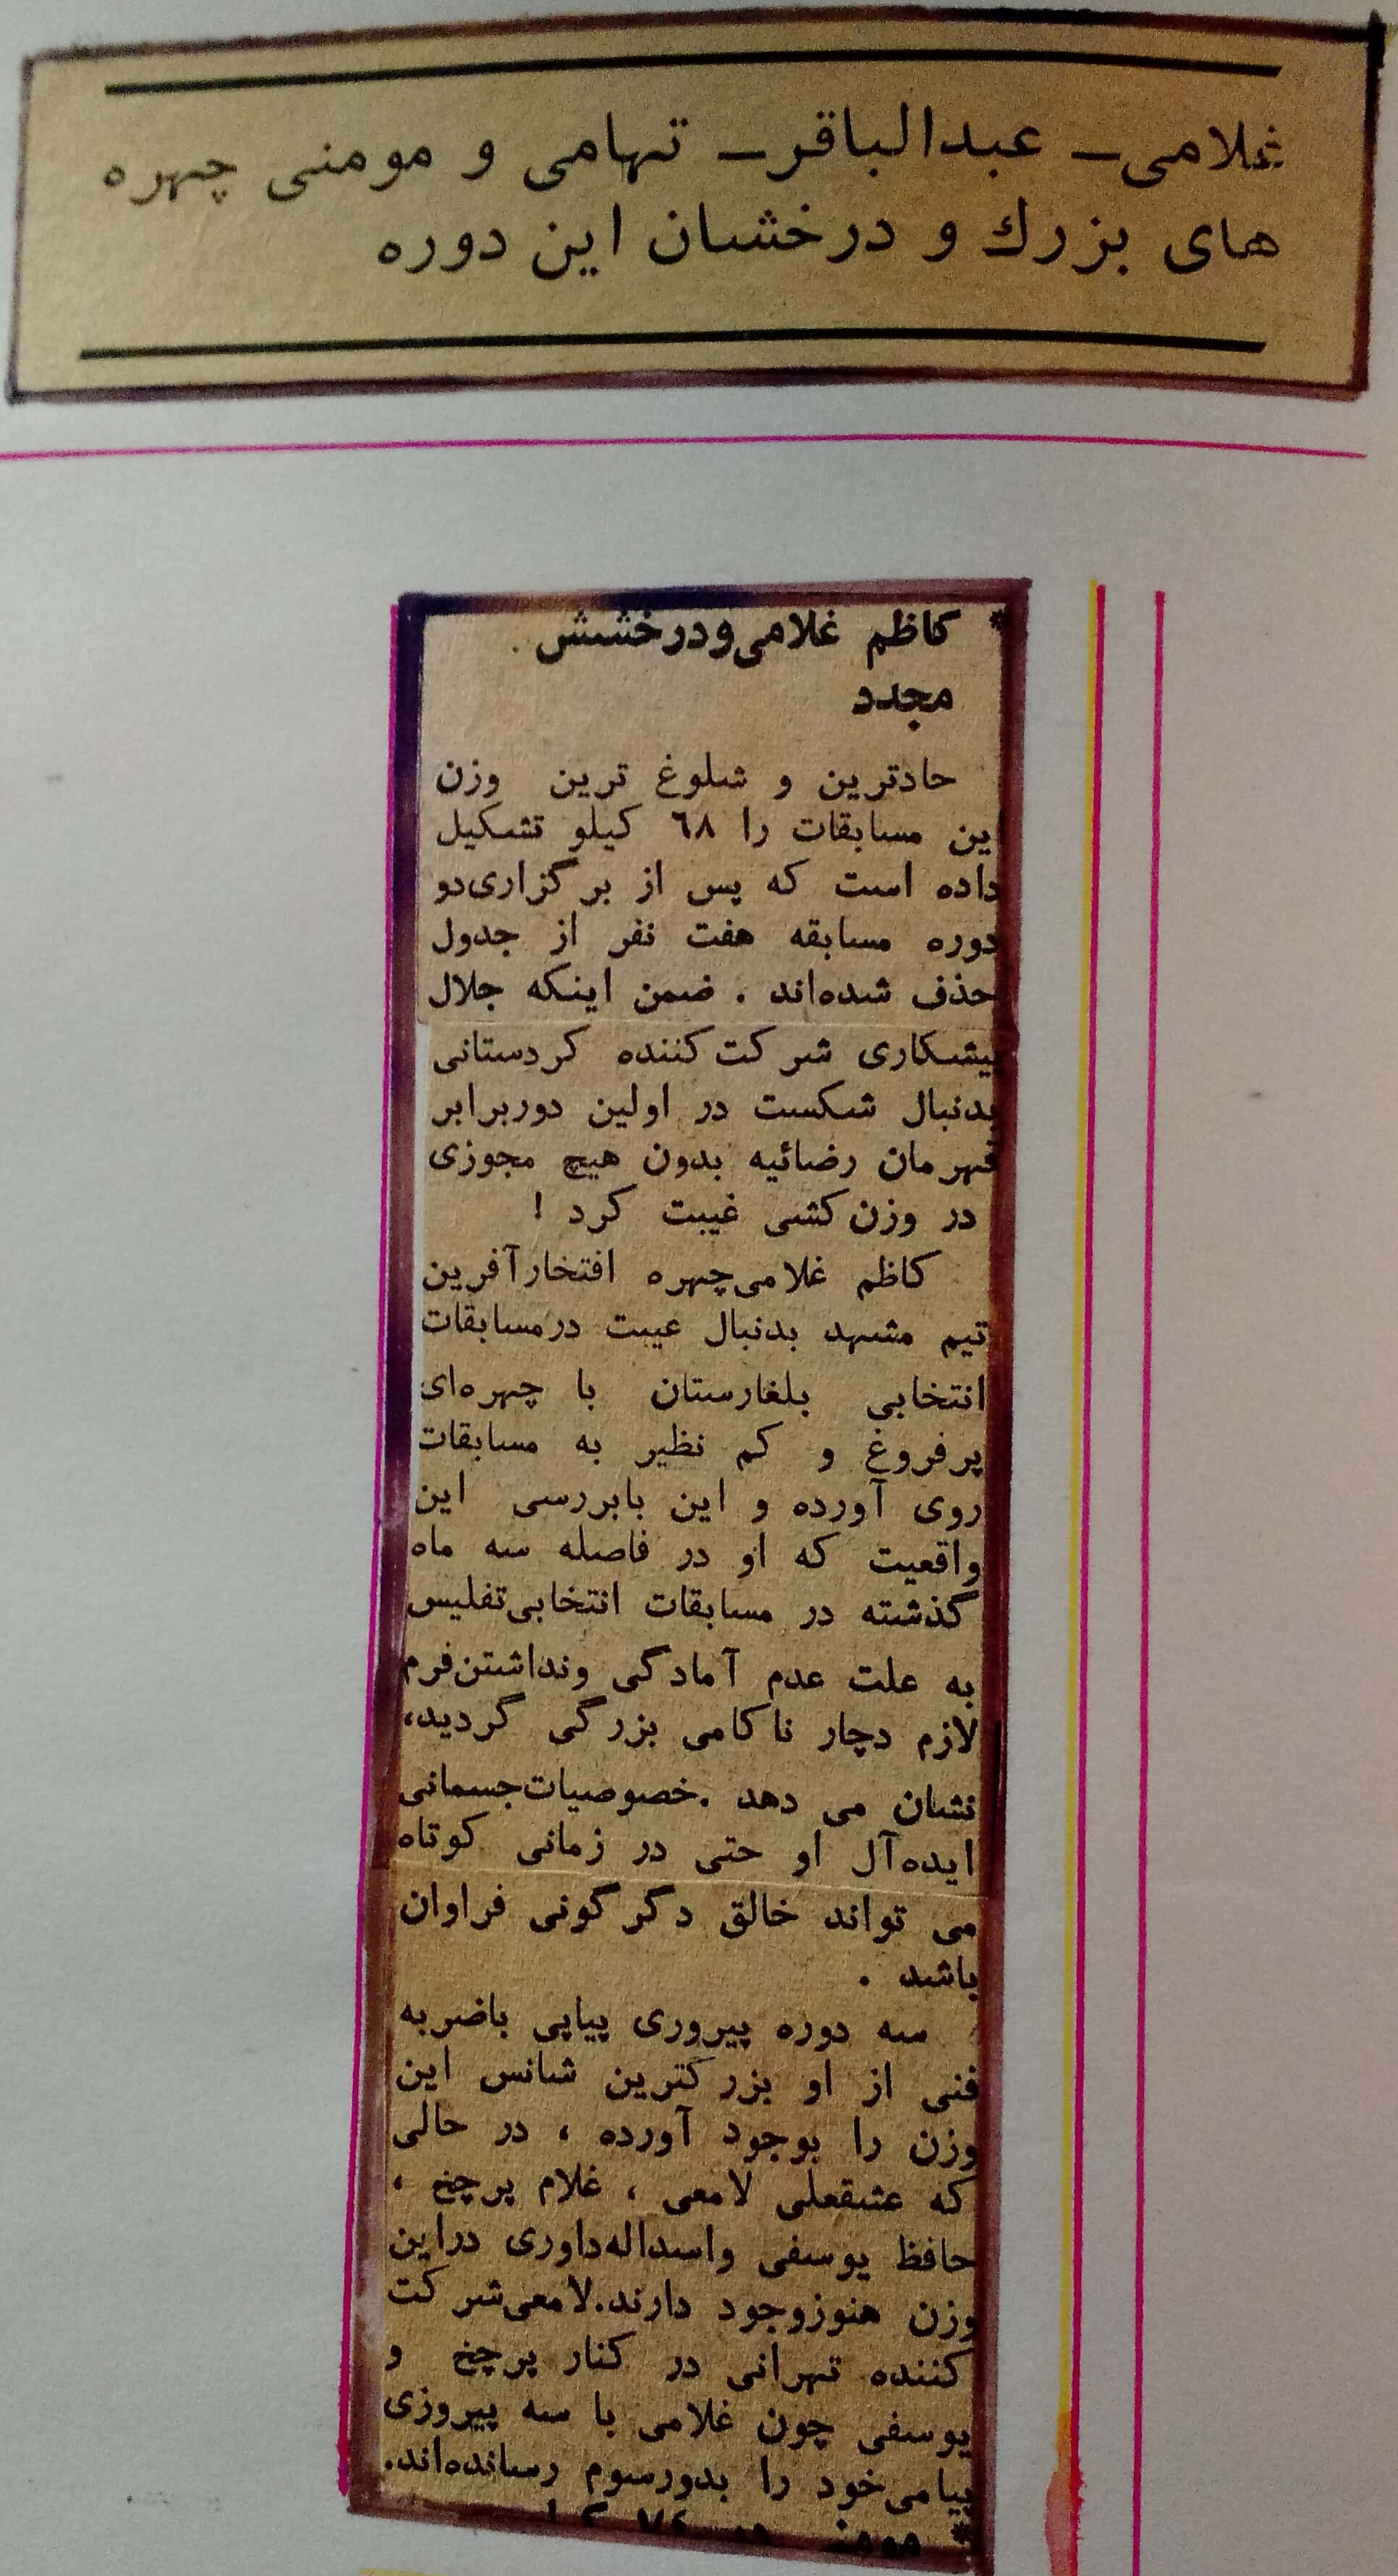 غلامی ـ عبدالباقر ـ تهامی و مومنی چهره
های بزرك و درخشان این دوره
* کاظم غلامی‌ودرخشش
مجدد
حادترین و شلوغ ترین وزن
این مسابقات را ٦٨ کیلو تشکیل
داده است که پس از برگزاری‌دو
دوره مسابقه هفت نفر از جدول
حذف شده‌اند . ضمن اینکه جلال
پیشکاری شرکت‌کننده کردستانی
بدنبال شکست در اولین دوربرابر
قهرمان رضائیه بدون هیچ مجوزی
در وزن‌کشی غیبت کرد !
کاظم غلامی‌چهره افتخارآفرین
تیم مشهد بدنبال غیبت درمسابقات
انتخابی بلغارستان با چهره‌ای
پرفروغ و کم نظیر به مسابقات
روی آورده و این بابررسی این
واقعیت که او در فاصله سه ماه
گذشته در مسابقات انتخابی‌تفلیس
به علت عدم آمادگی ونداشتن‌فرم
لازم دچار ناکامی بزرگی گردید،
نشان می دهد .خصوصیات‌جسمانی
ایده‌آل او حتی در زمانی کوتاه
می تواند خالق دگرگونی فراوان
باشد .
سه دوره پیروری پیاپی باضربه
فنی از او بزرگترین شانس این
وزن را بوجود آورده ، در حالی
که عشقعلی لامعی ، غلام پرچخ ،
حافظ یوسفی واسداله‌داوری دراین
وزن هنوزوجود دارند.لامعی‌شرکت
کننده تهرانی در کنار پرچخ و
یوسفی چون غلامی با سه پیروزی
پیامی‌خود را بدورسوم رسانده‌اند.